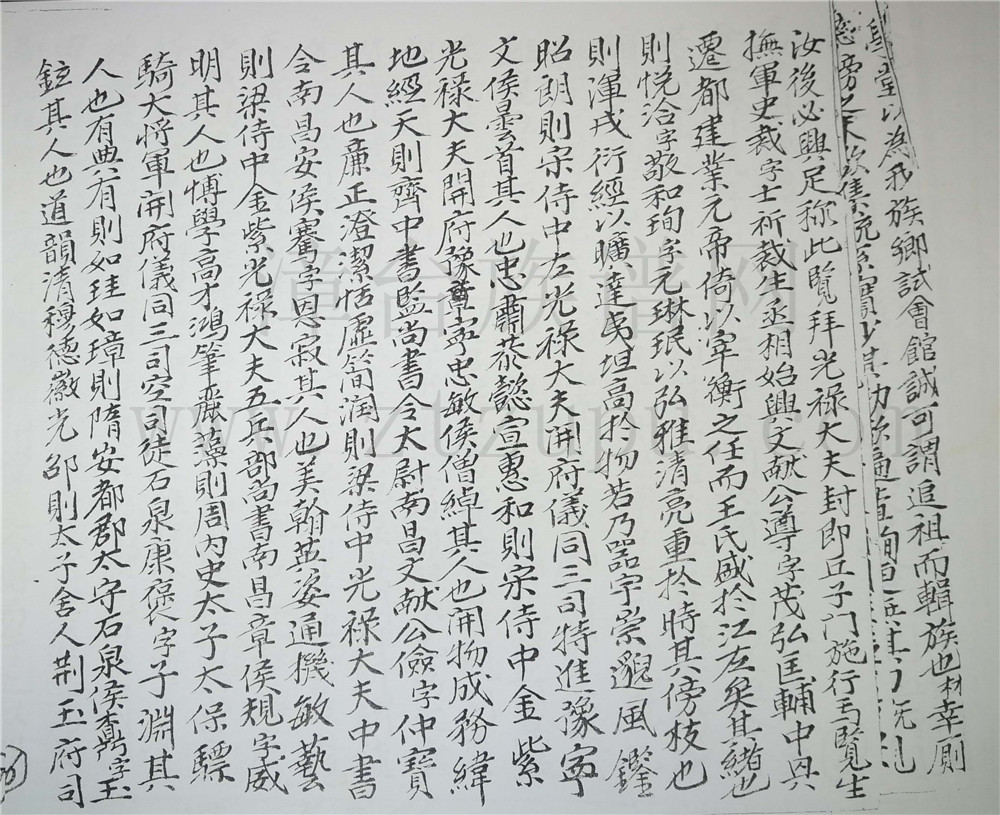 以為我族鄉試會館誠可謂追祖而輯族也材幸厠
汝後必興足称此覽拜光祿大夫封即丘子門施行馬覽生
撫軍史裁字士祈裁生丞相始興文献公遵字茂弘匡輔中興
遷都建業元帝倚以宰衡之任而王氏盛於江左矣其緒也
則悅洽字敬和珣字元琳珉以弘雅清亮重於時其傍枝也
則渾戎衍經以曠達夷坦高於物若乃器宇崇邈風鑒
昭朗則宋侍中左光祿大夫開府儀同三司特進豫寧
文侯曇首其人也忠肅恭懿宣惠和則宋侍中金紫
光祿大夫開府豫章寧忠敏侯僧綽其人也開物成務緯
地經天則齊中書監尚書令太尉南昌文献公儉字仲寶
其人也亷正澄潔恬虛簡润則梁侍中光祿大夫中書
令南昌安侯騫字思寂其人也美翰英姿通機敏藝
則梁侍中金紫光祿大夫五兵部尚書南昌章侯規字威
明其人也愽學高才鴻筆麗藻則周内史太子太保驃
騎大將軍開府儀同三司空司徒石泉康褒字子淵其
人也有典有則如珪如璋則隋安都郡太守石泉侯鼒字玉
鉉其人也道韻清穆徳徽光邵則太子舍人荆王府司
www.ztzupu.com
漳台族譜网